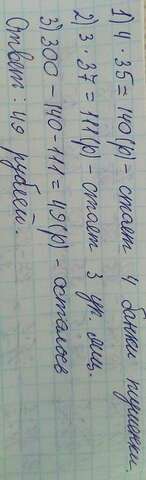 1) 4 · 35 = 140 (р) - стоят 4 банки тушёнки.
2) 3 · 37 = 111 (р) - стоят 3 уп. яиц.
3) 300 - 140 - 111 = 49 (р) - осталось
Ответ: 49 рублей.